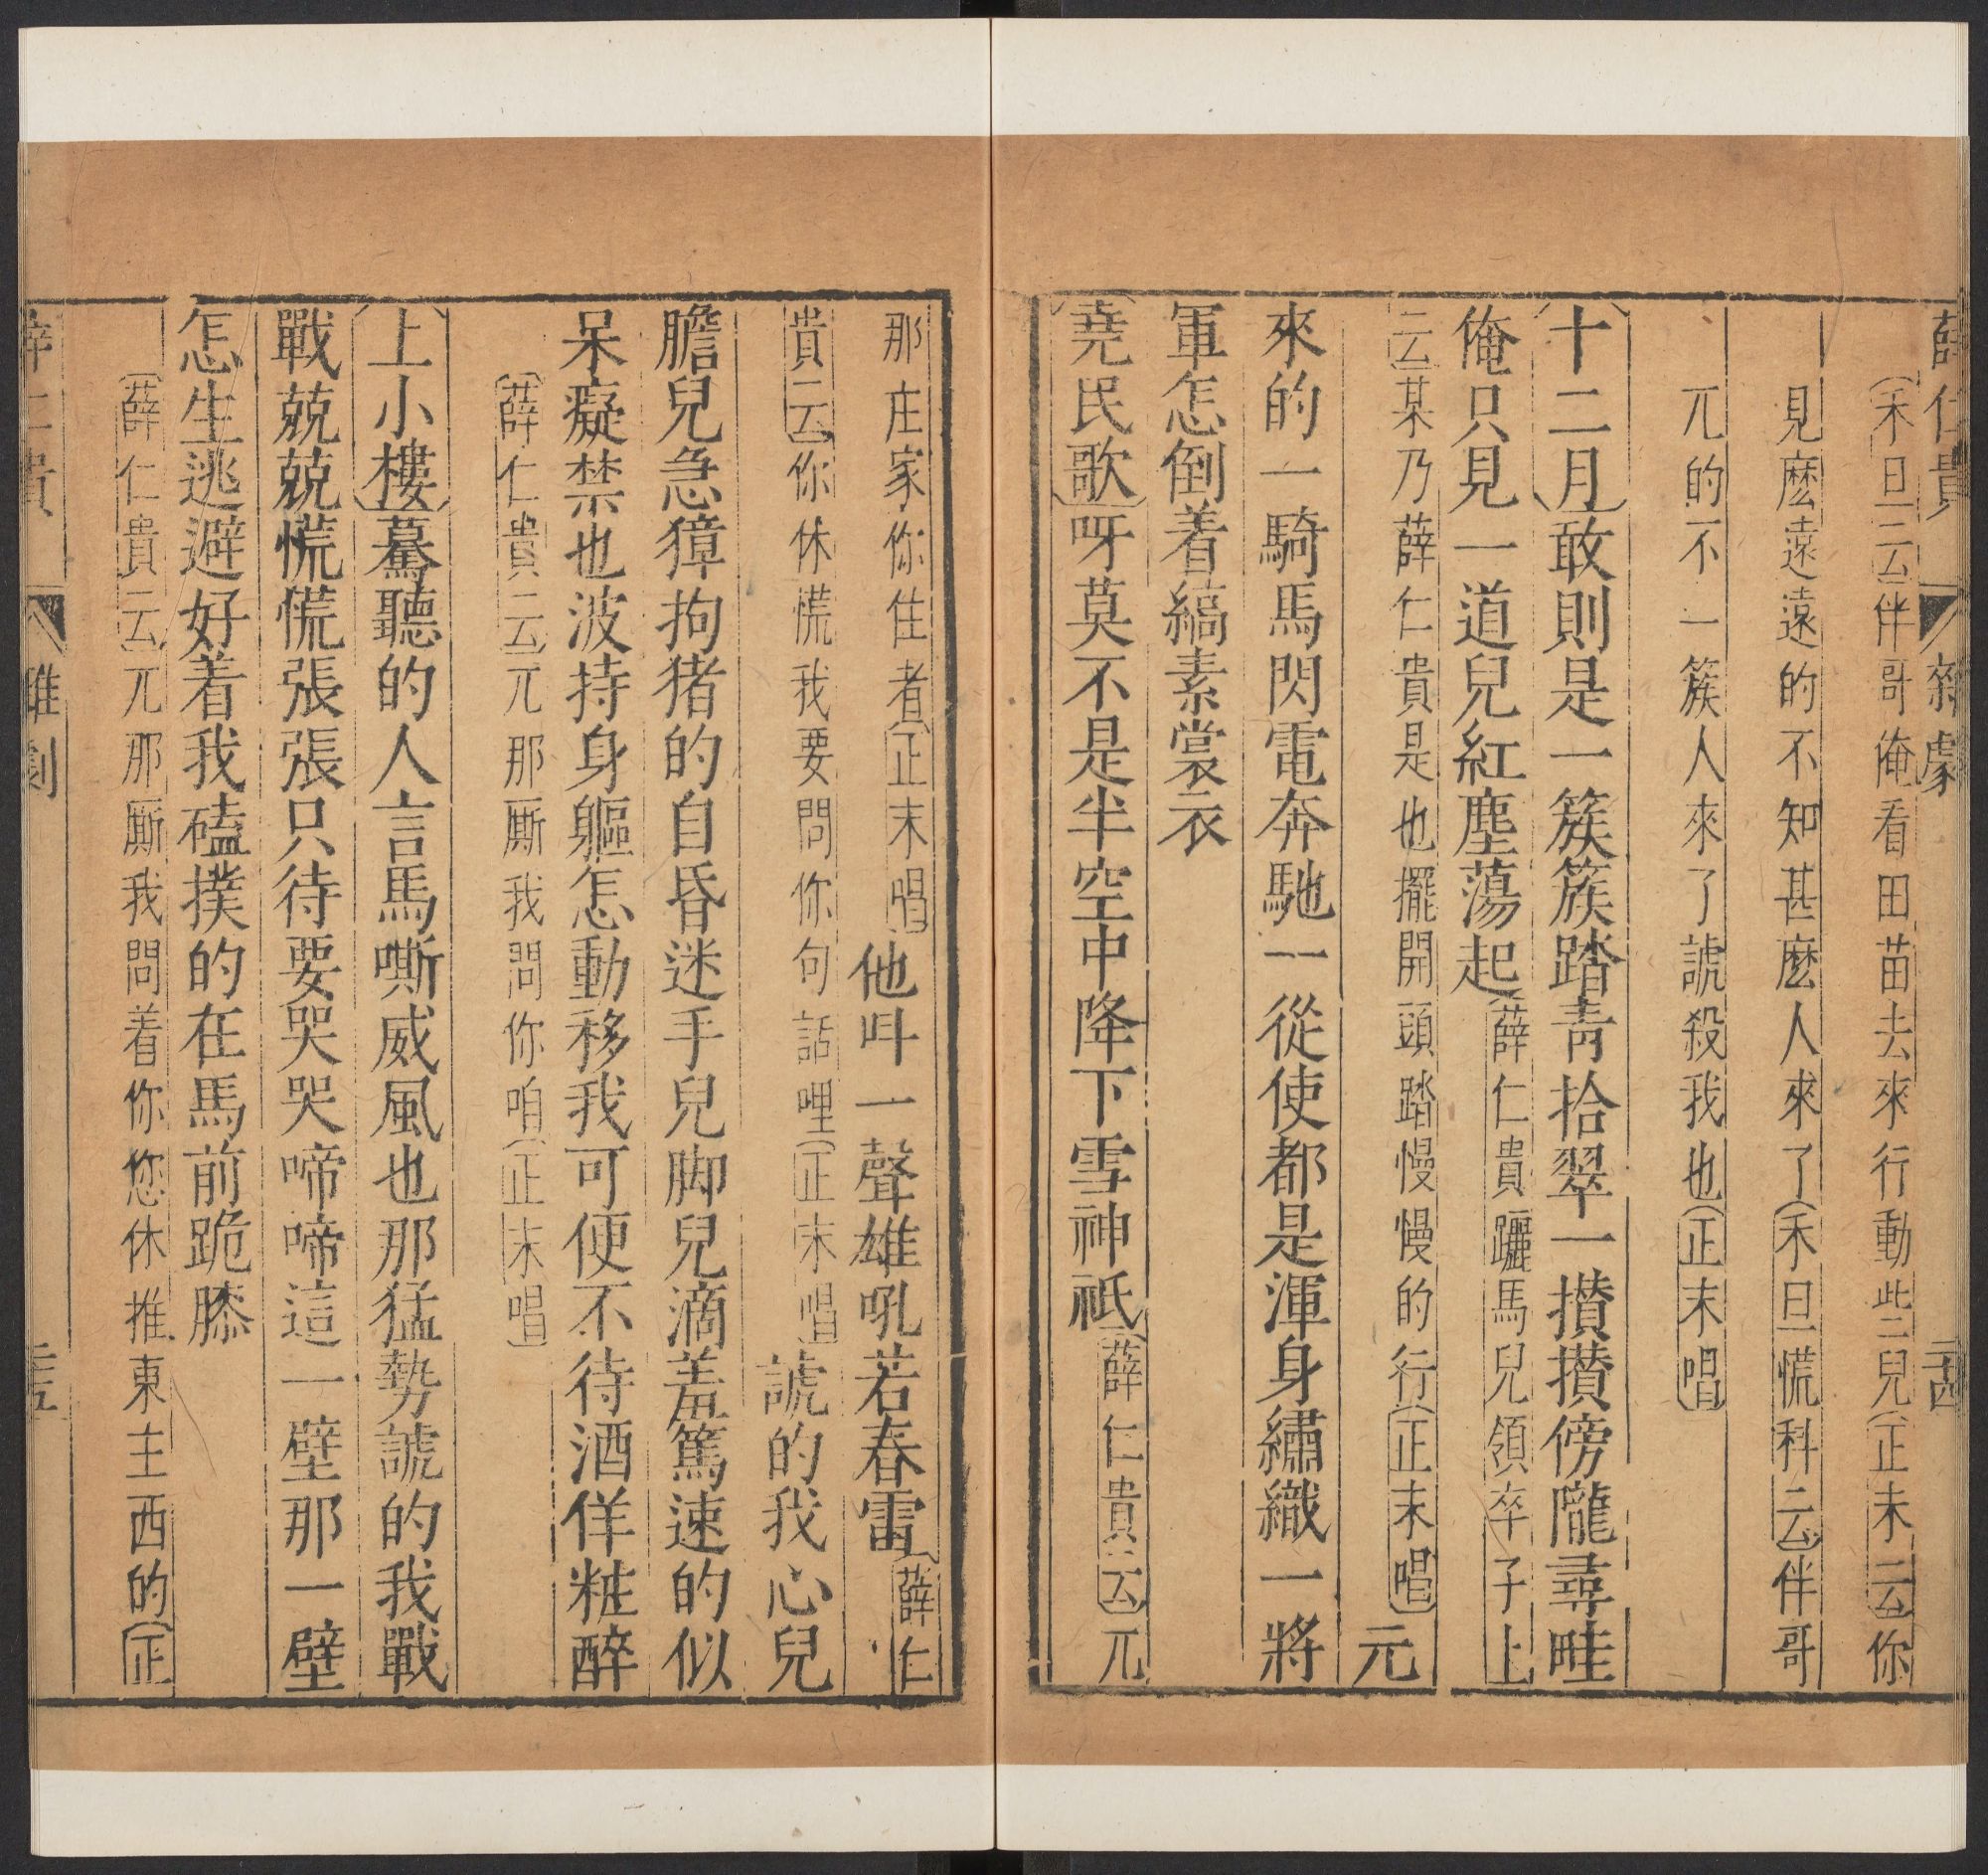 薛仁貴 雜劇 二十四
禾旦云伴哥俺看田苗去來行動些兒正末云你
見麽遠遠的不知甚麽人來了禾旦慌科云伴哥
兀的不一簇人來了諕殺我也正末唱
十二月敢則是一簇簇踏青拾翠一攅攅傍隴尋畦
俺只見一道兒紅塵蕩起薛仁貴躧馬兒領卒子上
云某乃薛仁貴是也擺開頭踏慢慢的行正末唱元
來的一騎馬閃電奔馳一從使都是渾身繡織一將
軍怎倒着縞素裳衣
堯民歌呀莫不是半空中降下雪神祇薛仁貴云兀
那庄家你住者正末唱他呌一聲雄吼若春雷薛仁
貴云你休慌我要問你句話哩正末唱諕的我心兒
膽兒急獐拘猪的自昏迷手兒脚兒滴羞篤速的似
呆癡禁也波持身軀怎動移我可便不待酒佯粧醉
薛仁貴云兀那厮我問你咱正末唱
上小樓驀聽的人言馬嘶威風也那猛勢諕的我戰
戰兢兢慌慌張張只待要哭哭啼啼這一壁那一壁
怎生逃避好着我磕撲的在馬前跪膝
薛仁貴云兀那厮我問着你您休推東主西的正
薛仁貴 雜劇